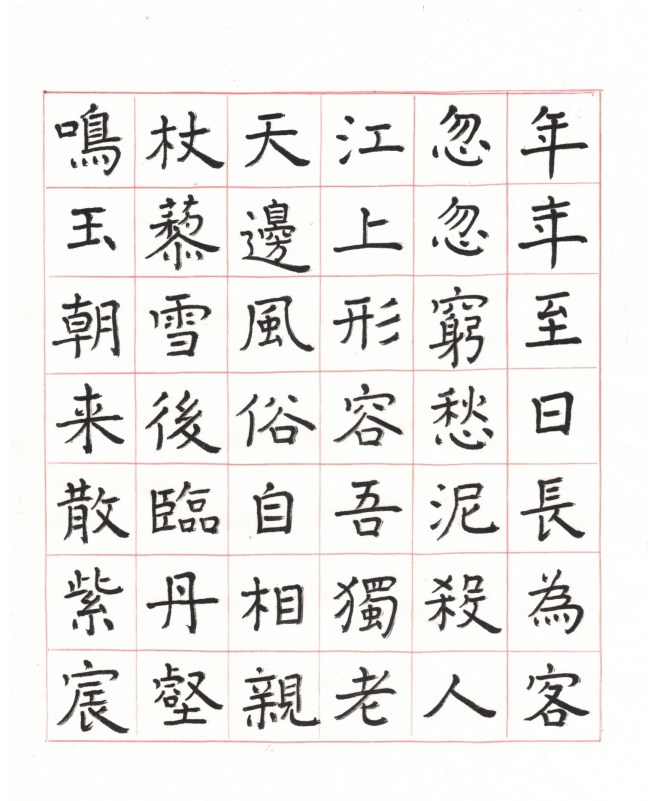 年年至日長為客
忽忽窮愁泥殺人
江上形容吾獨老
天邊風俗自相親
杖藜雪後臨丹壑
鳴玉朝来散紫宸